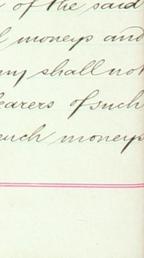 of the said
moneys and
shall not
bearers of such
such moneys